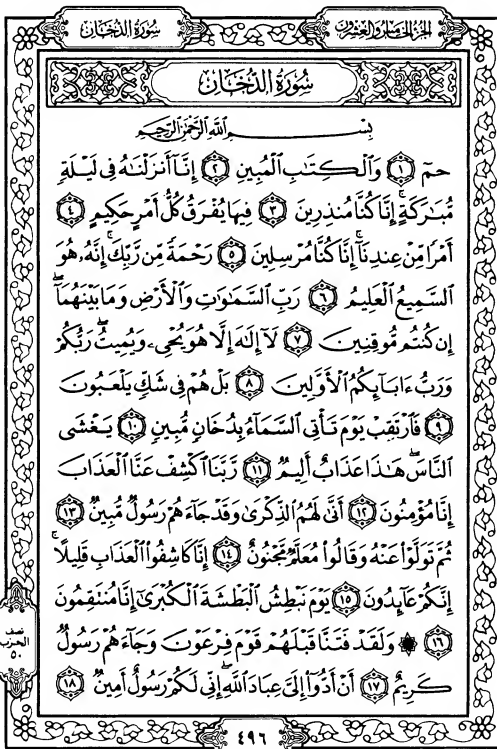 الجزء الخامس والعشرون
سورة الدخان
سُورَةُ الدُّخَانِ
بِسْمِ اللَّهِ الرَّحْمَٰنِ الرَّحِيمِ
حمٓ ١ وَٱلْكِتَٰبِ ٱلْمُبِينِ ٢ إِنَّآ أَنزَلْنَٰهُ فِى لَيْلَةٍ
مُّبَٰرَكَةٍ ۚ إِنَّا كُنَّا مُنذِرِينَ ٣ فِيهَا يُفْرَقُ كُلُّ أَمْرٍ حَكِيمٍ ٤
أَمْرًا مِّنْ عِندِنَآ ۚ إِنَّا كُنَّا مُرْسِلِينَ ٥ رَحْمَةً مِّن رَّبِّكَ ۚ إِنَّهُۥ هُوَ
ٱلسَّمِيعُ ٱلْعَلِيمُ ٦ رَبِّ ٱلسَّمَٰوَٰتِ وَٱلْأَرْضِ وَمَا بَيْنَهُمَآ ۖ
إِن كُنتُم مُّوقِنِينَ ٧ لَآ إِلَٰهَ إِلَّا هُوَ يُحْىِۦ وَيُمِيتُ ۖ رَبُّكُمْ
وَرَبُّ ءَابَآئِكُمُ ٱلْأَوَّلِينَ ٨ بَلْ هُمْ فِى شَكٍّ يَلْعَبُونَ
٩ فَٱرْتَقِبْ يَوْمَ تَأْتِى ٱلسَّمَآءُ بِدُخَانٍ مُّبِينٍ ١٠ يَغْشَى
ٱلنَّاسَ ۖ هَٰذَا عَذَابٌ أَلِيمٌ ١١ رَّبَّنَا ٱكْشِفْ عَنَّا ٱلْعَذَابَ
إِنَّا مُؤْمِنُونَ ١٢ أَنَّىٰ لَهُمُ ٱلذِّكْرَىٰ وَقَدْ جَآءَهُمْ رَسُولٌ مُّبِينٌ ١٣
ثُمَّ تَوَلَّوْا۟ عَنْهُ وَقَالُوا۟ مُعَلَّمٌ مَّجْنُونٌ ١٤ إِنَّا كَاشِفُوا۟ ٱلْعَذَابِ قَلِيلًا ۚ
إِنَّكُمْ عَآئِدُونَ ١٥ يَوْمَ نَبْطِشُ ٱلْبَطْشَةَ ٱلْكُبْرَىٰٓ إِنَّا مُنتَقِمُونَ
١٦ ۞ وَلَقَدْ فَتَنَّا قَبْلَهُمْ قَوْمَ فِرْعَوْنَ وَجَآءَهُمْ رَسُولٌ
كَرِيمٌ ١٧ أَنْ أَدُّوٓا۟ إِلَىَّ عِبَادَ ٱللَّهِ ۖ إِنِّى لَكُمْ رَسُولٌ أَمِينٌ ١٨
نصف
الحزب
٥٠
٤٩٦